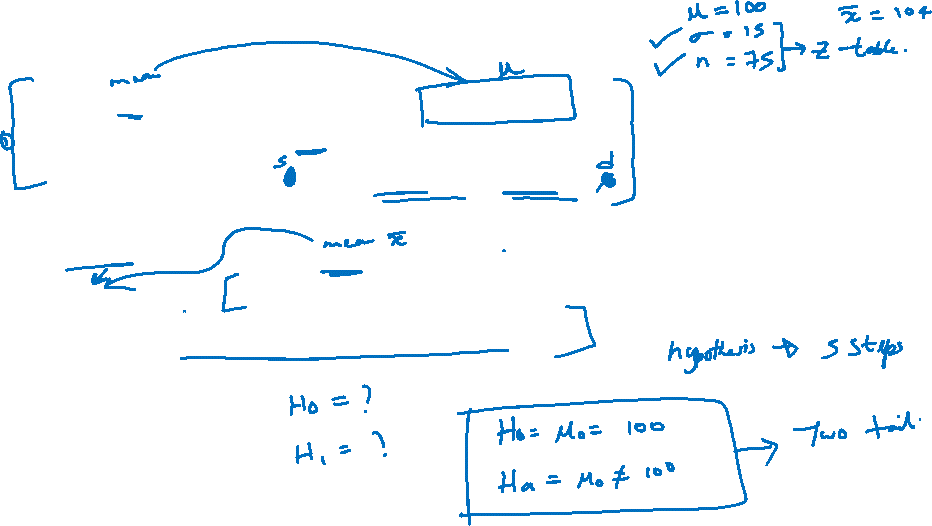 μ = 100 x̄ = 104
σ = 15
n = 75 → Z-table.
mean μ
σ
s d
mean x̄
hypothesis → 5 steps
H₀ = ?
H₁ = ?
H₀ = μ₀ = 100
Hₐ = μ₀ ≠ 100
Two tail.